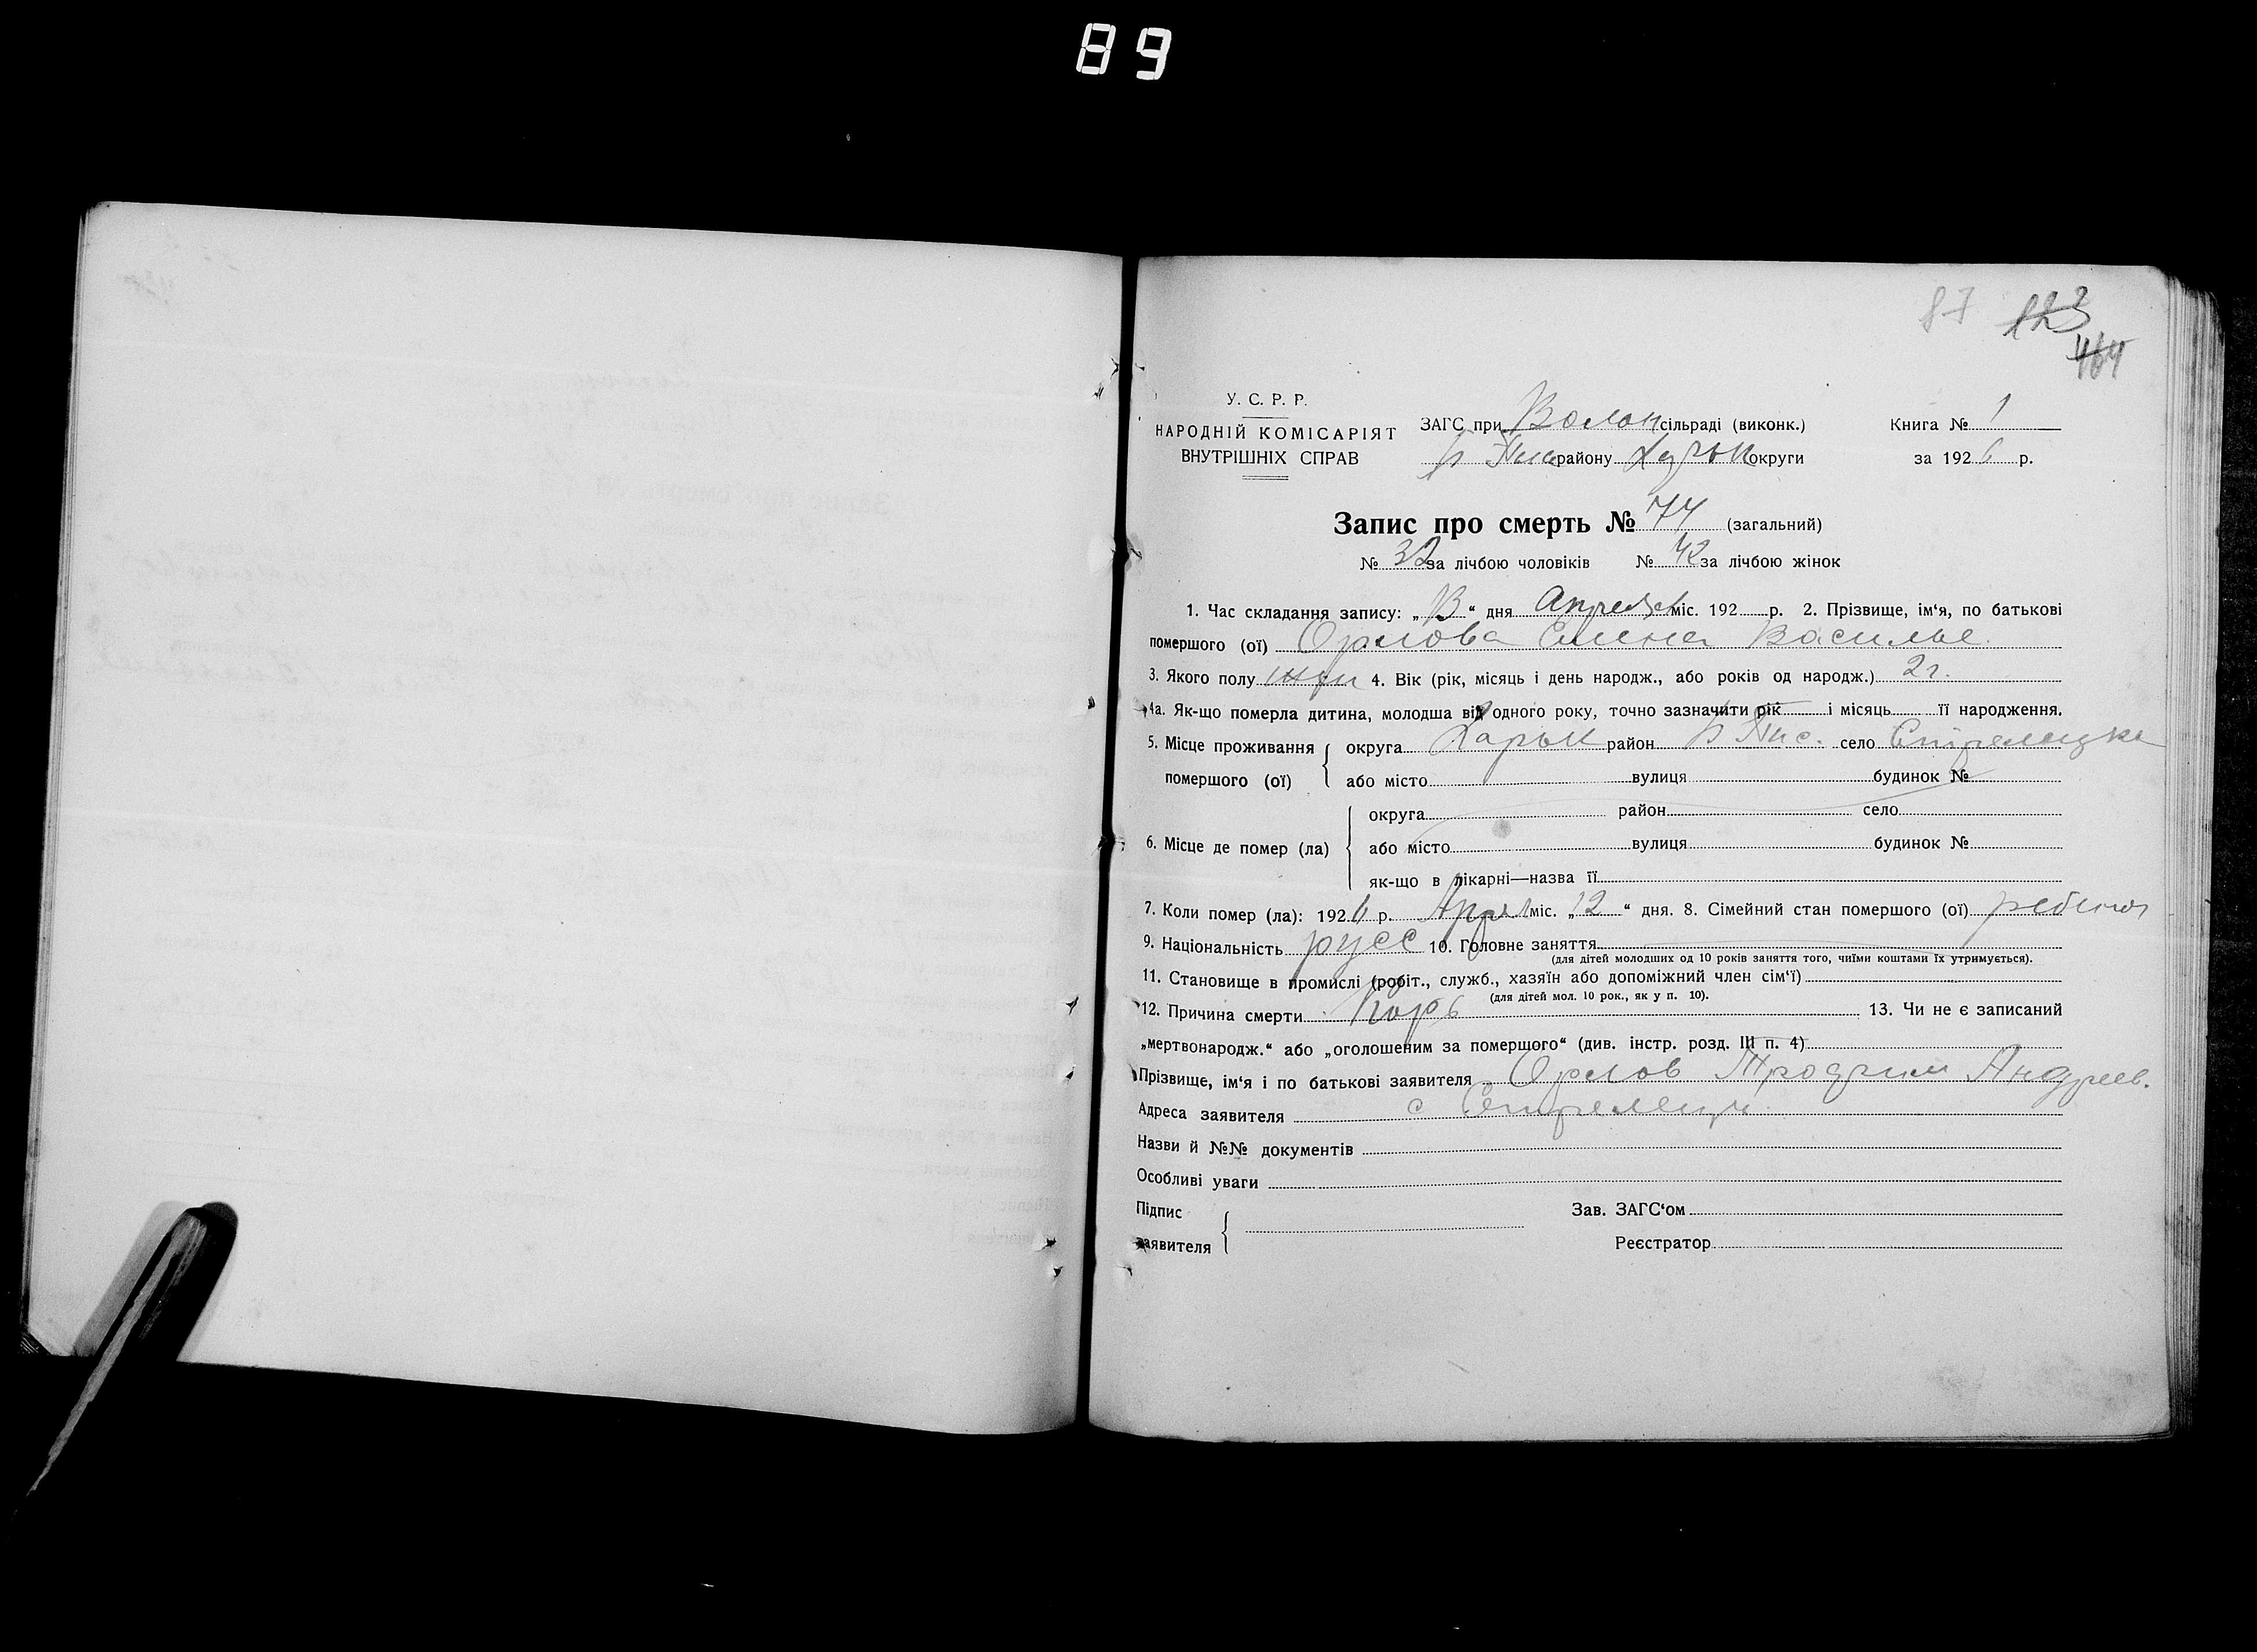 89
87 123
464
У. С. Р. Р.
НАРОДНІЙ КОМІСАРІЯТ
ВНУТРІШНІХ СПРАВ
ЗАГС при Волон сільраді (виконк.)
району Харьк округи
Книга № 1
за 1926 р.
Запис про смерть № 74 (загальний)
№ 32 за лічбою чоловіків № 42 за лічбою жінок
1. Час складання запису: „13“ дня Апреля міс. 192 р. 2. Прізвище, ім‘я, по батькові
помершого (ої) Орлова Елена Василье
3. Якого полу жен 4. Вік (рік, місяць і день народж., або років од народж.) 2г.
4а. Як-що померла дитина, молодша від одного року, точно зазначити рік і місяць її народження.
5. Місце проживання помершого (ої) округа Харьк район Б Пис. село Стрелецке
або місто вулиця будинок №
6. Місце де помер (ла) округа район село
або місто вулиця будинок №
як-що в лікарні—назва її
7. Коли помер (ла): 1926 р. Апрел міс. „12“ дня. 8. Сімейний стан помершого (ої) ребенок
9. Національність русс 10. Головне заняття
(для дітей молодших од 10 років заняття того, чиїми коштами їх утримується).
11. Становище в промислі (робіт., служб., хазяїн або допоміжний член сім‘ї)
(для дітей мол. 10 рок., як у п. 10).
12. Причина смерти Корь 13. Чи не є записаний
„мертвонародж.“ або „оголошеним за помершого“ (див. інстр. розд. III п. 4)
Прізвище, ім‘я і по батькові заявителя Орлов Андреев.
Адреса заявителя с Стрелецк
Назви й №№ документів
Особливі уваги
Підпис
заявителя
Зав. ЗАГС‘ом
Реєстратор